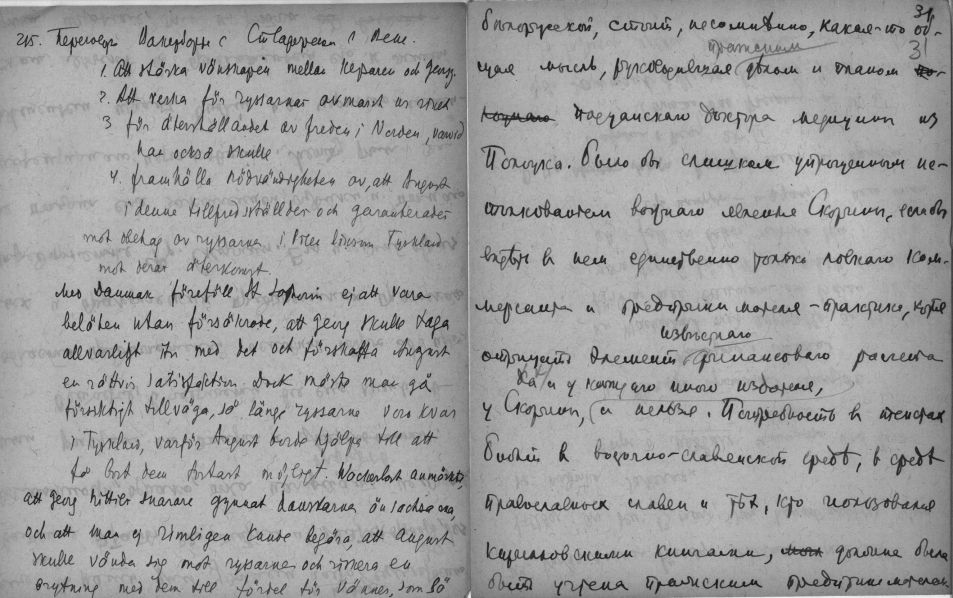 215. Переговоры с
1. Att stärka vänskapen mellan kejsaren och Georg.
2. Att verka för ryssarnas avmarsch ur riket
3 för återställandet av freden i Norden, varvid
han också skulle
4. framhålla nödvändigheten av, att August
i denna tillfredsställdes och garanterades
mot obehag av ryssarna i Polen liksom Tyskland
mot deras återkomst.
Med Danmark föreföll St Saphorin ej att vara
belåten utan försäkrade, att Georg skulle taga
allvarligt itu med det och förskaffa August
en rättvis satisfaktion Dock måste man gå
försiktigt tillväga, så länge ryssarna voro kvar
i Tyskland, varför August borde hjälpa till att
få bort dem snarast möjligt. anmärkte,
att Georg hittills snarare gynnat danskarna än sachsarna,
och att man ej rimligen kunde begära, att August
skulle vända sig mot ryssarna och riskera en
brytning med dem till fördel för vänner, som så
31
31
белорусской, стоит, несомненно, какая-то об-
пражским
щая мысль, руководившая дѣлом и планом
падуанскаго доктора медицины из
Полоцка. Было бы слишком упрощенным ис-
толкованием важнаго явления Скорины, если бы
видѣть в нем единственно только ловкаго ком-
мерсанта и предпринимателя-практика, хотя
извѣстнаго
отрицать элемент финансоваго расчета
как и у каждого иного издателя,
у Скорины, и нельзя. Потребность в текстах
Библии в восточно-славянской средѣ, в средѣ
православных славян и тѣх, кто пользовался
кирилловскими книгами, должна была
быть учтена пражским предпринимателем